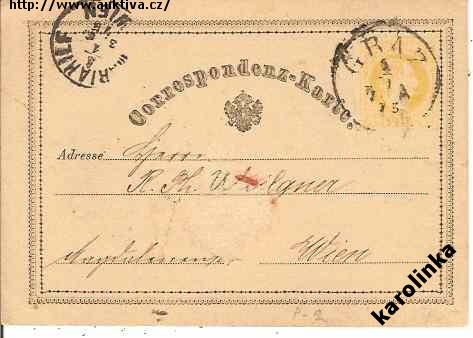 http://www.auktiva.cz/
WIEN
MARIAHILF
GRAZ
Correspondenz-Karte.
Adresse Herrn
R. Th.
Wien
P-2
karolinka